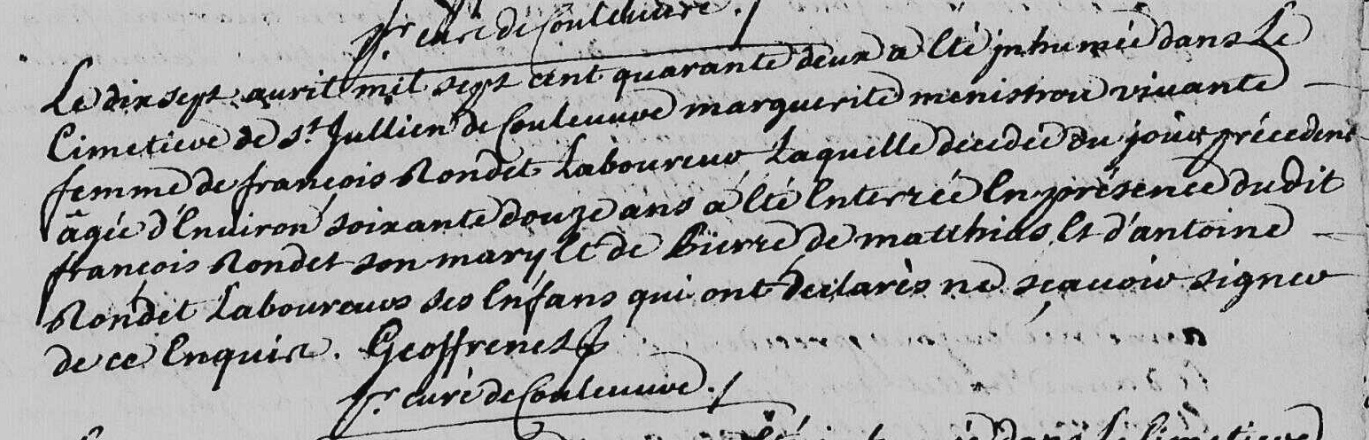 pr curé de Couleuvre ./.
Le dix sept avril mil sept cent quarante deux a Eté jnhumée dans Le
Cimetiere de St. Jullien de Couleuvre marguerite menistrou vivante
femme de françois Rondet Laboureur Laquelle décedée du jour précedent
âgée d'Environ soixante douze ans a Eté Enterrée En présence dudit
françois Rondet son mary Et de Pierre de matthias Et d'antoine
Rondet Laboureurs ses Enfans qui ont declarés ne sçavoir signer
de ce Enquis. Geoffrenet
pr curé de Couleuvre ./
dans Le Cimetiere